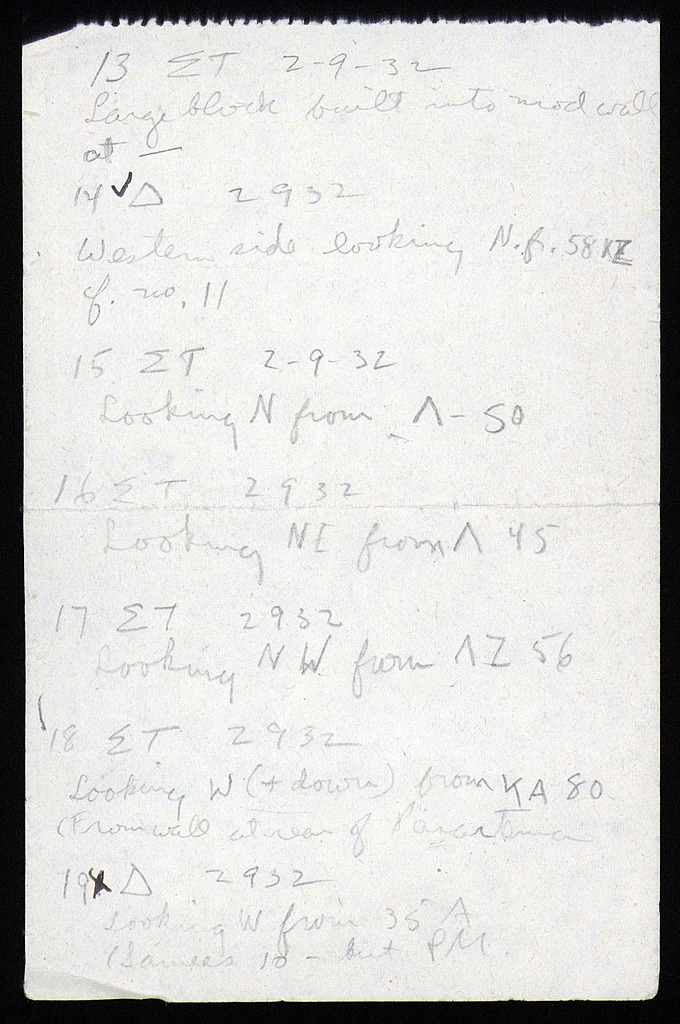 13 ΣΤ 2-9-32
Large block built into mod wall
at —
14 ✓ Δ 2 9 32
Western side looking N. fr. 58 ΚΖ
cf. no. 11
15 ΣΤ 2-9-32
Looking N from Λ - 50
16 ΣΤ 2 9 32
Looking NE from Λ 45
17 ΣΤ 2 9 32
Looking NW from ΛΖ 56
18 ΣΤ 2 9 32
Looking W (+ down) from ΚΑ 80
(From wall at rear of
19 Δ 2 9 32
Looking W from 35 Λ
(Same as 10 - but PM.